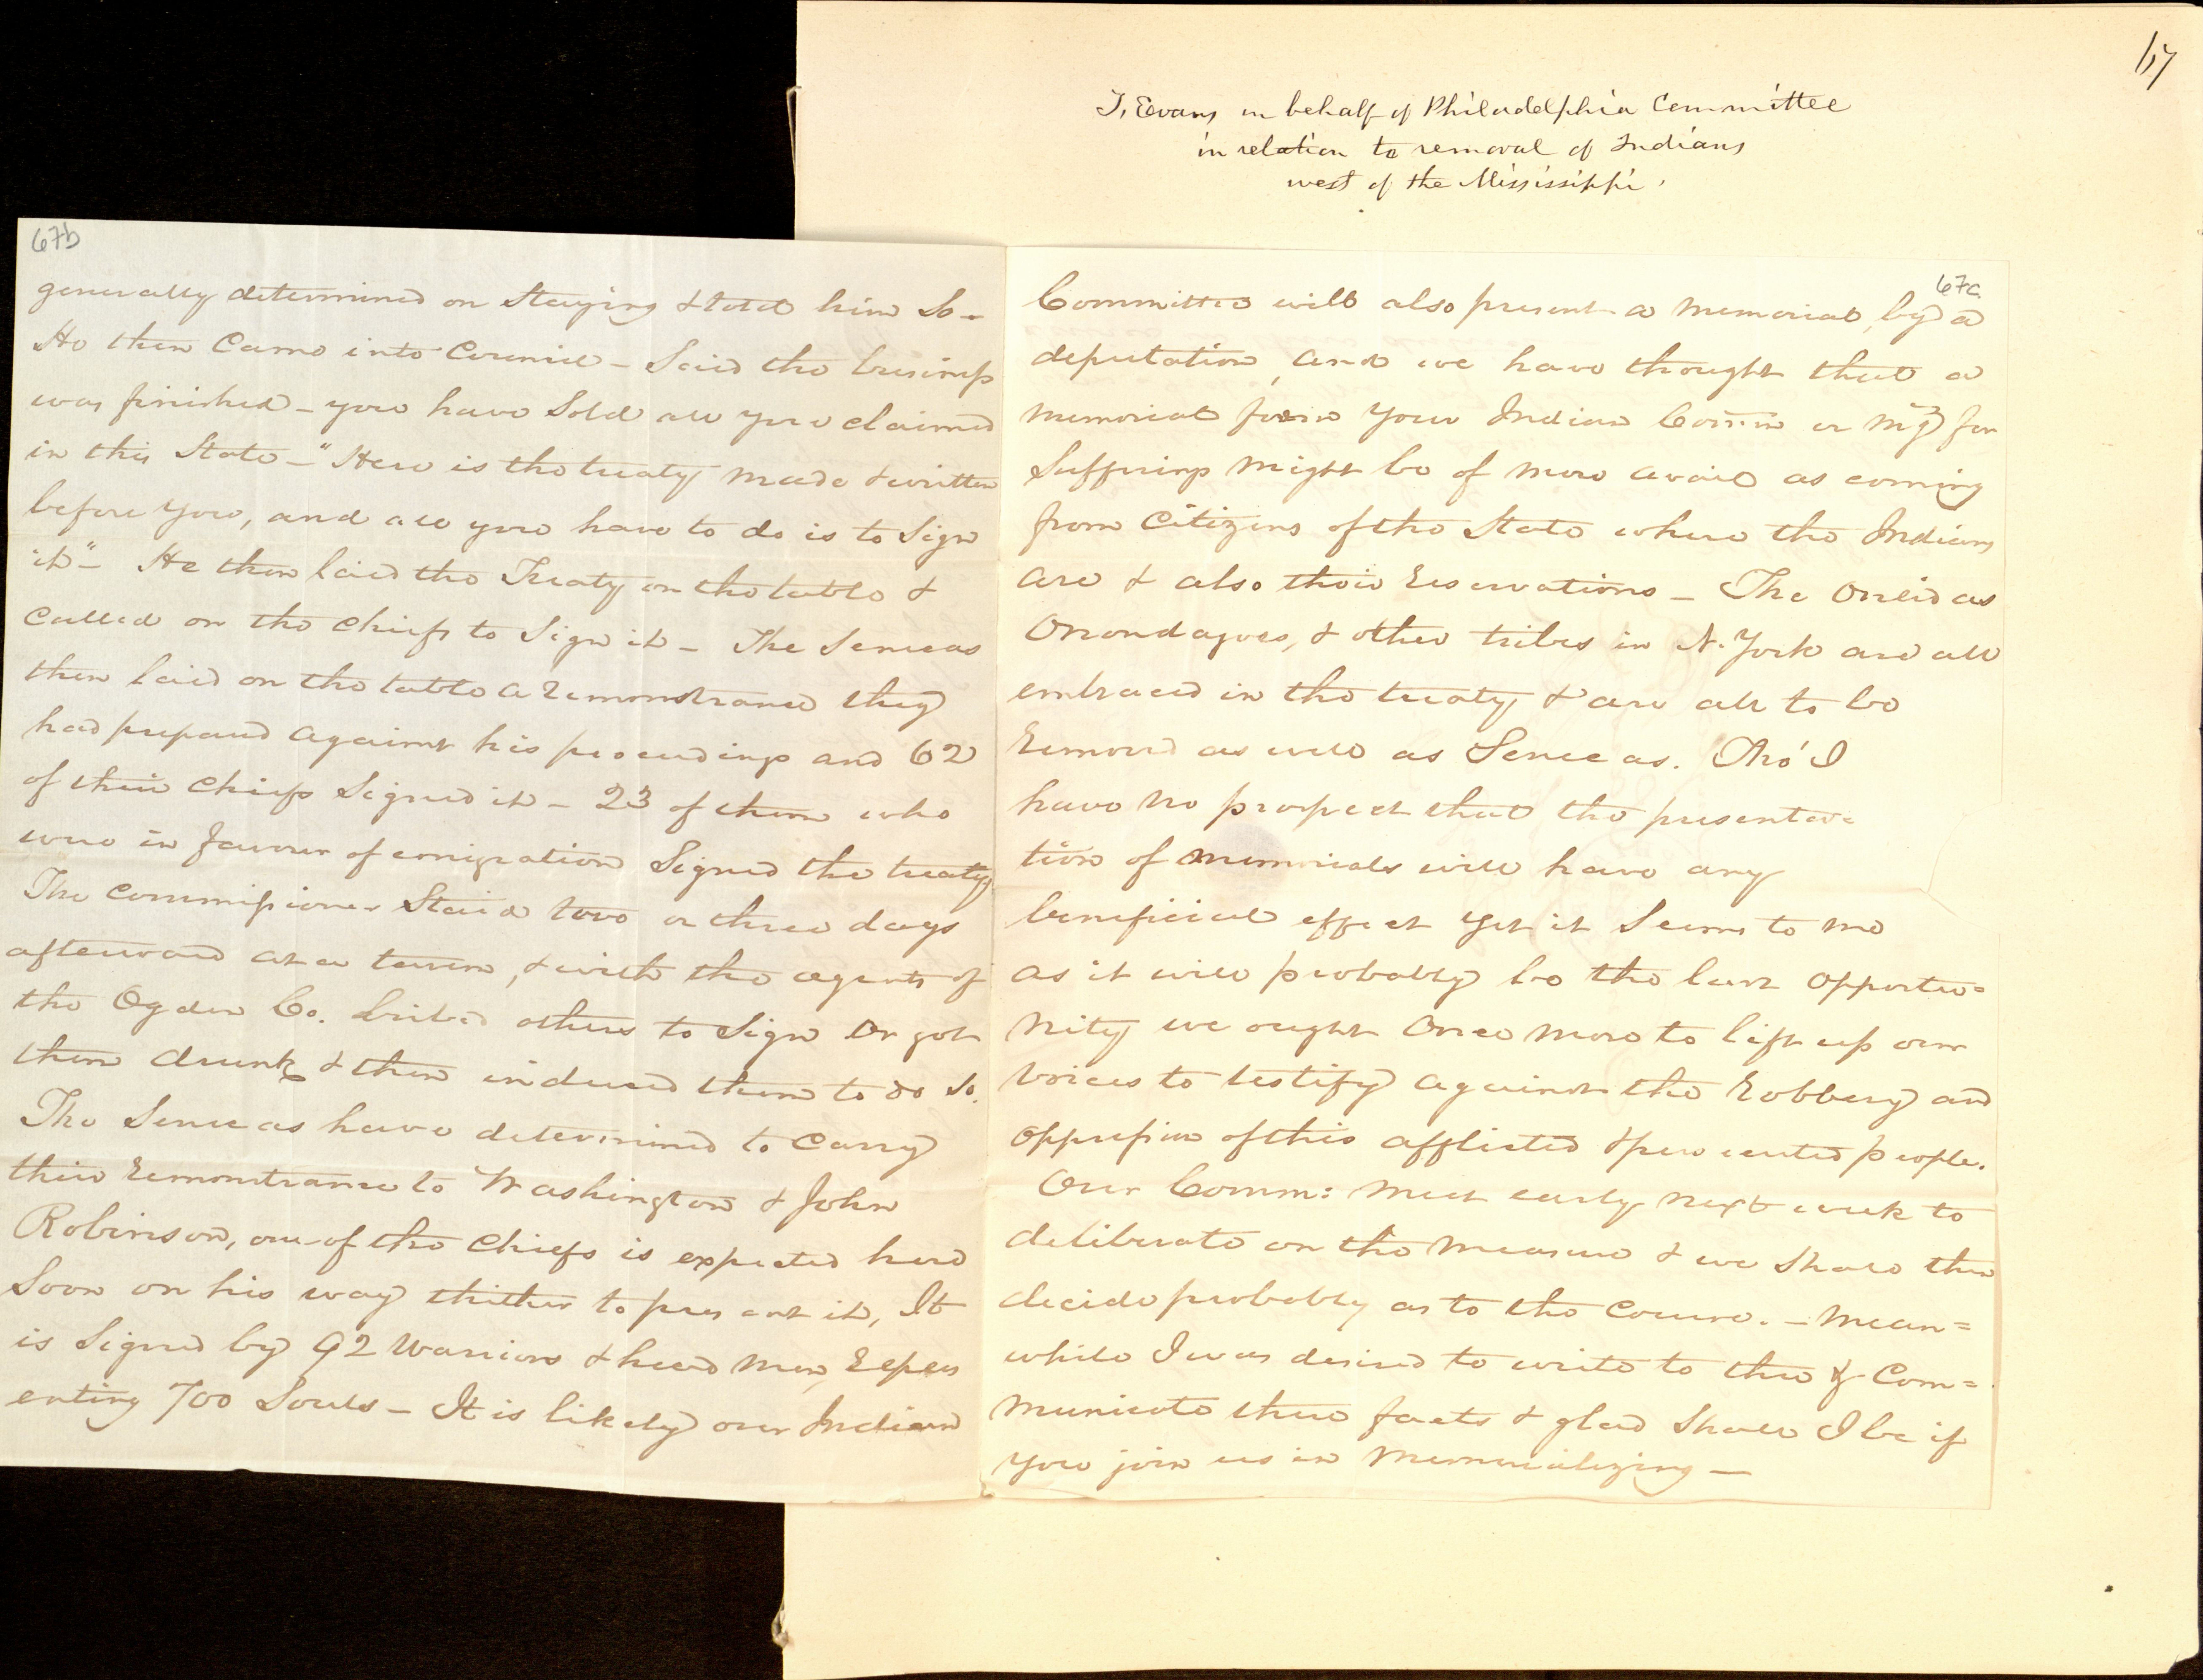 67
T, Evans in behalf of Philadelphia Committee
in relation to removal of Indians
west of the Mississippi.
67b
generally determined on Staying & told him So –
He then Came into Council – Said the business
was finished – you have Sold all you claimed
in this State – "Here is the treaty made & written
before you, and all you have to do is to Sign
it" – He then laid the Treaty on the table &
Called on the Chiefs to Sign it – The Senecas
then laid on the table a remonstrance they
had prepared against his proceedings and 62
of their Chiefs Signed it – 23 of them who
were in favour of emigration Signed the treaty
The Commissioner Staid two or three days
afterward at a tavern, & with the agents of
the Ogden Co. bribed others to Sign Or got
them drunk & then induced them to do So.
The Senecas have determined to Carry
their remonstrance to Washington & John
Robinson, one of the Chiefs is expected here
Soon on his way thither to present it, It
is Signed by 92 Warriors & head men, repres
enting 700 Souls – It is likely our Indian
67c
Committee will also present a memorial, by a
deputation, and we have thought that a
memorial from your Indian Comm or Mg for
Sufferings might be of more avail as coming
from Citizens of the State where the Indians
are & also their reservations – The Oneidas
Onondagoes, & other tribes in N. York are all
embraced in the treaty, & are all to be
removed as well as Senecas. Tho' I
have no prospect that the presenta=
tion of memorials will have any
beneficial effect yet it Seems to me
as it will probably be the last opportu=
nity we ought Once more to lift up our
voices to testify against the robbery and
oppression of this afflicted & persecuted people.
Our Comm: meet early next week to
deliberate on the measure & we Shall then
decide probably as to the Course. – Mean=
while I was desired to write to thee & Com=
municate these facts & glad Shall I be if
you join us in Memorializing –